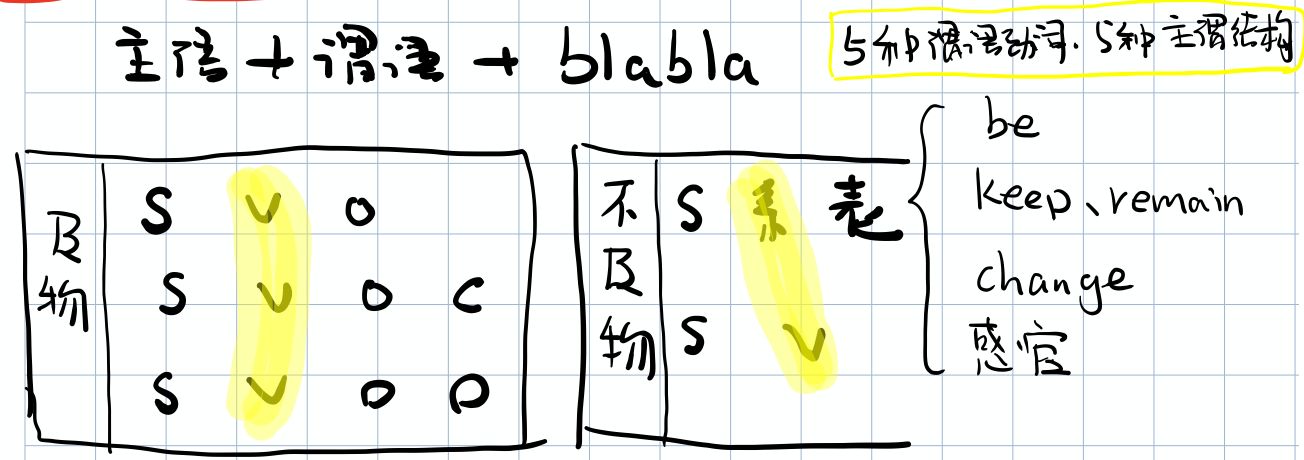 主语+谓语+blabla
5种谓语动词.5种主谓结构
及物
S V O
S V O C
S V O O
不及物
S 系 表
S V
be
keep、remain
change
感官